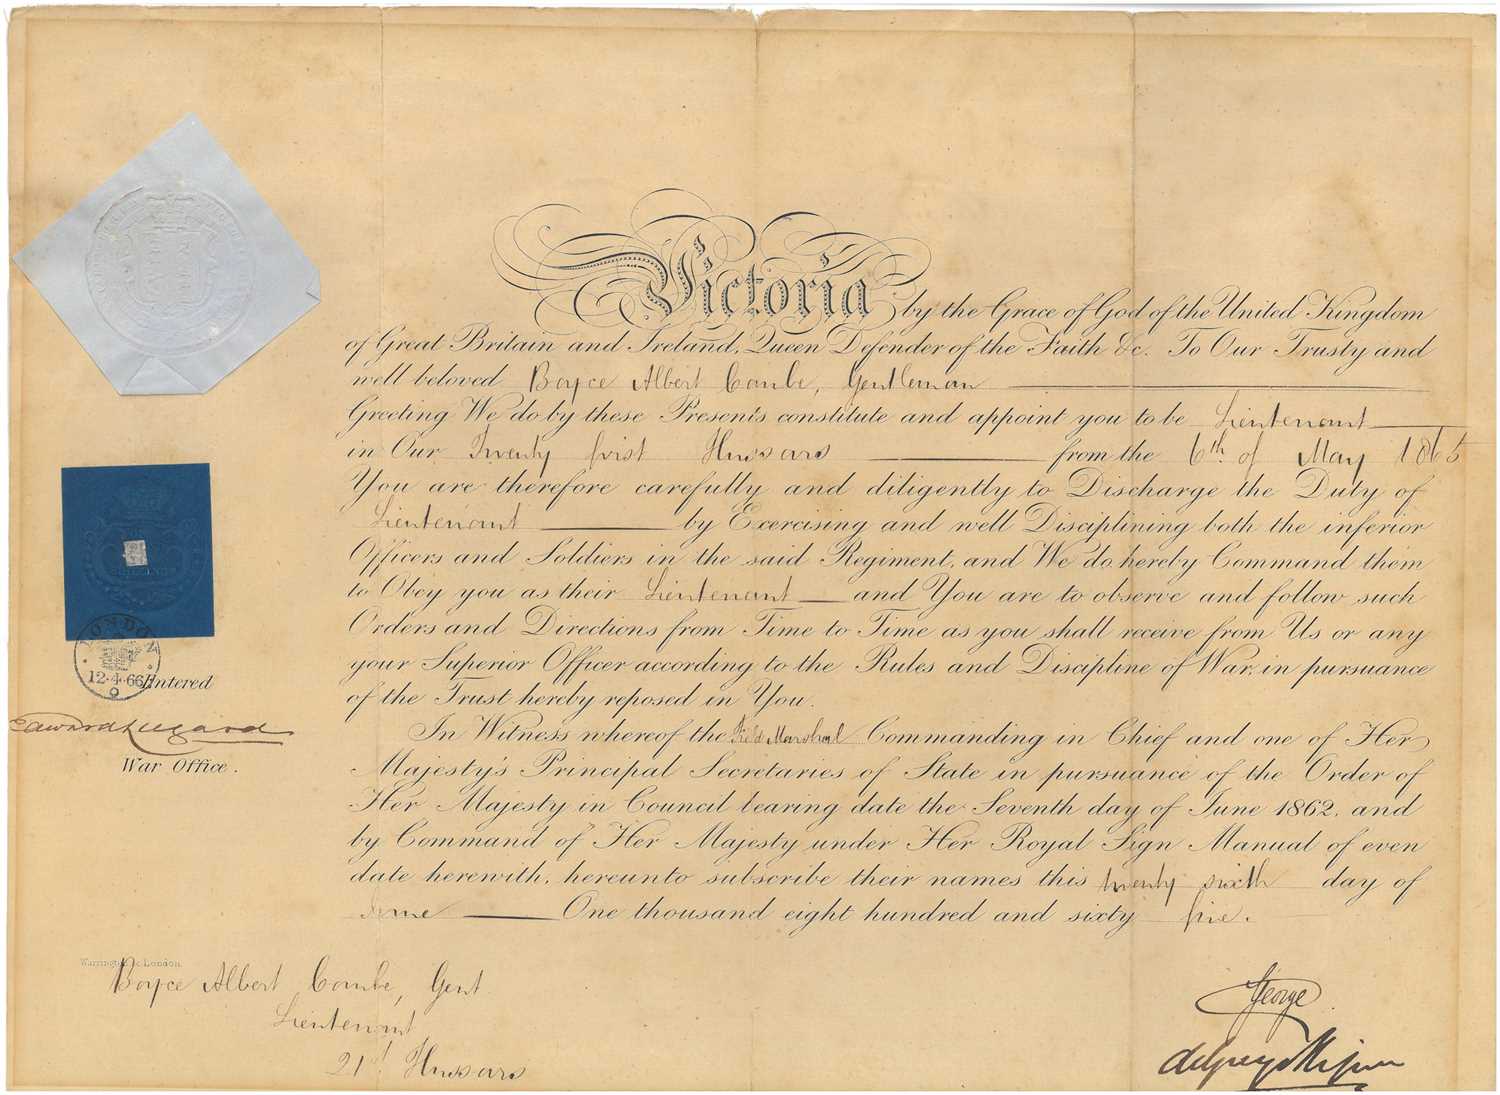 Victoria by the Grace of God of the United Kingdom
of Great Britain and Ireland, Queen Defender of the Faith &c. To Our Trusty and
well beloved Boyce Albert Combe, Gentleman
Greeting We do by these Presents constitute and appoint you to be Lieutenant
in Our Twenty first Hussars from the 6th of May 1865
You are therefore carefully and diligently to Discharge the Duty of
Lieutenant by Exercising and well Disciplining both the inferior
Officers and Soldiers in the said Regiment, and We do hereby Command them
to Obey you as their Lieutenant and You are to observe and follow such
Orders and Directions from Time to Time as you shall receive from Us or any
your Superior Officer according to the Rules and Discipline of War, in pursuance
of the Trust hereby reposed in You.
In Witness whereof the Field Marshal Commanding in Chief and one of Her
Majesty's Principal Secretaries of State in pursuance of the Order of
Her Majesty in Council bearing date the Seventh day of June 1862, and
by Command of Her Majesty under Her Royal Sign Manual of even
date herewith, hereunto subscribe their names this twenty sixth day of
June One thousand eight hundred and sixty five.
LONDON
12·4·66
Entered
Edward Lugard
War Office.
Boyce Albert Combe, Gent.
Lieutenant
21st Hussars
George
de Grey & Ripon